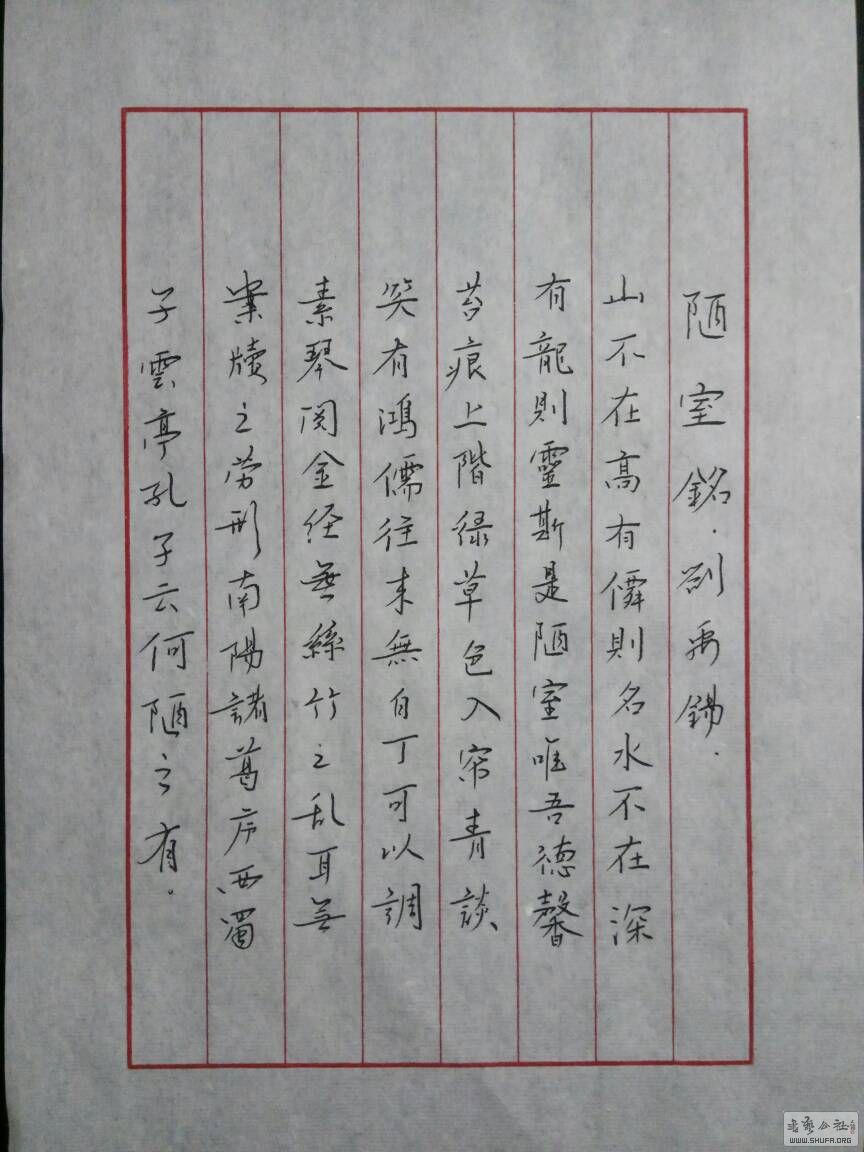 陋室銘.劉禹錫.
山不在高有僊則名水不在深
有龍則靈斯是陋室唯吾德馨
苔痕上階绿草色入帘青談
笑有鴻儒往来無白丁可以調
素琴阅金经無絲竹之乱耳無
案牍之劳形南陽諸葛庐西蜀
子雲亭孔子云何陋之有.
书艺公社
WWW.SHUFA.ORG